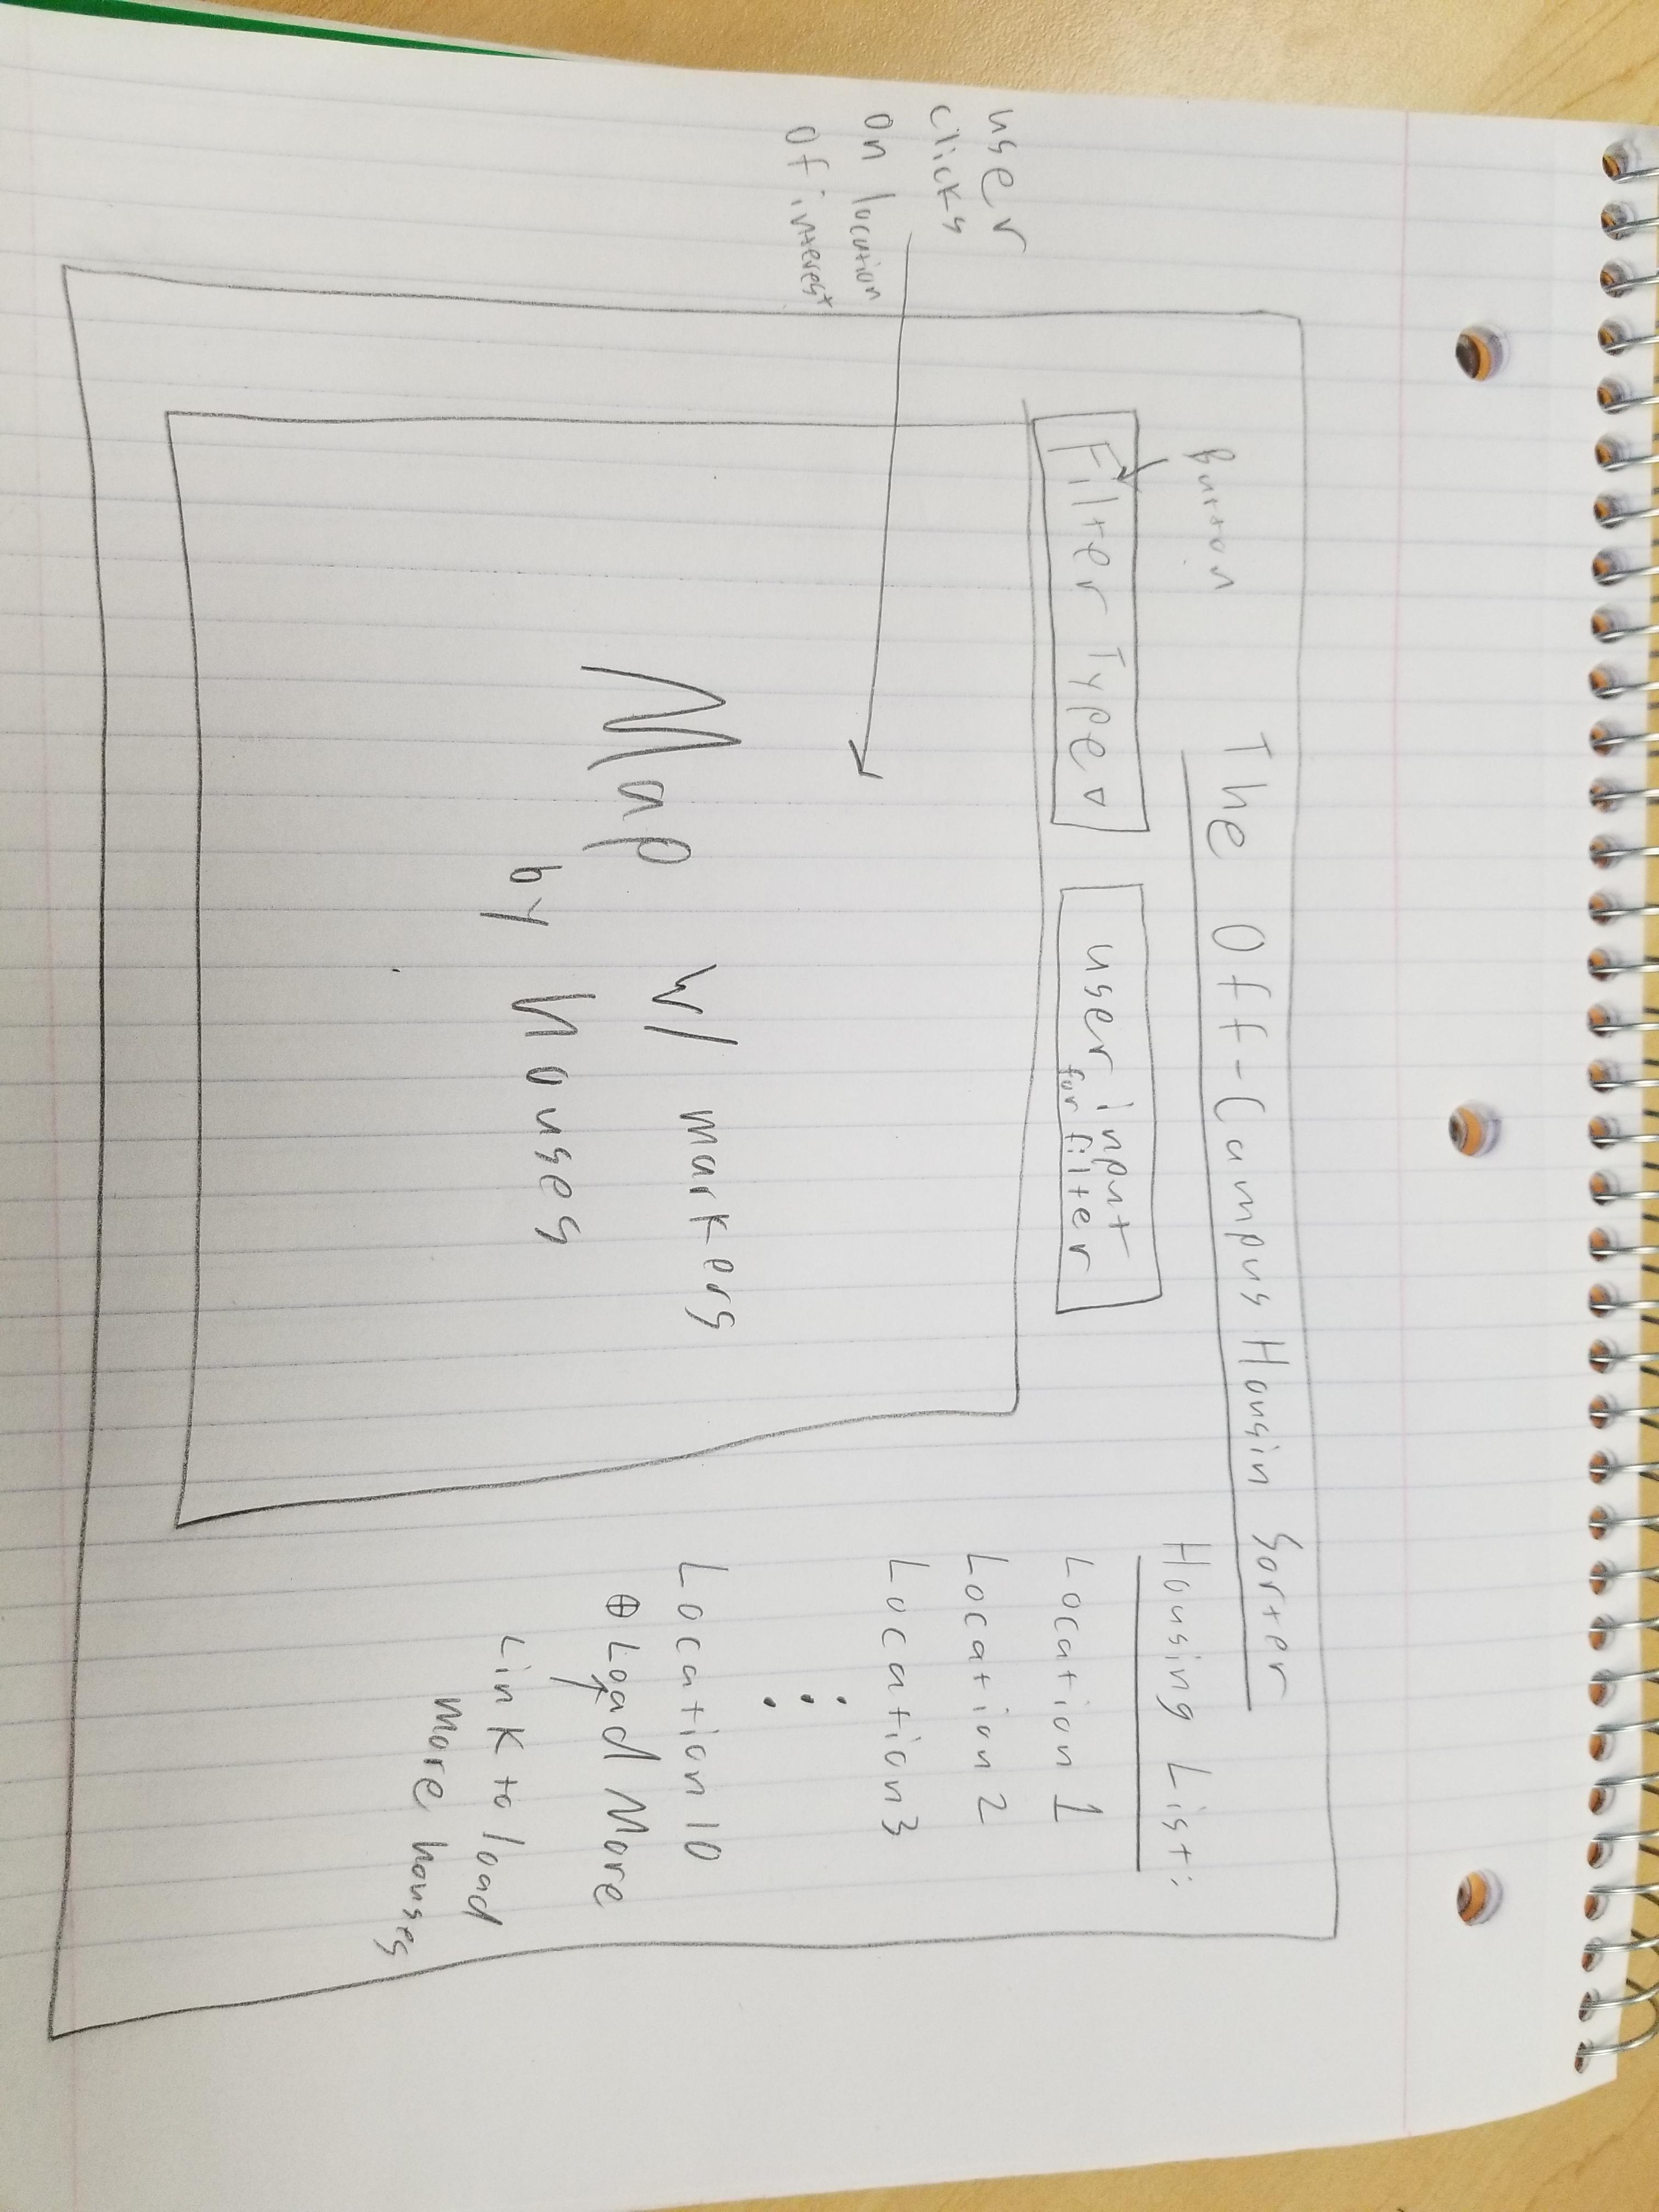 The Off-Campus Housin Sorter
Button
Filter Type ▿
user input
for filter
user
clicks
on location
of interest
Map w/ markers
by houses
Housing List:
Location 1
Location 2
Location 3
⋮
Location 10
⊕ Load More
Link to load
more houses